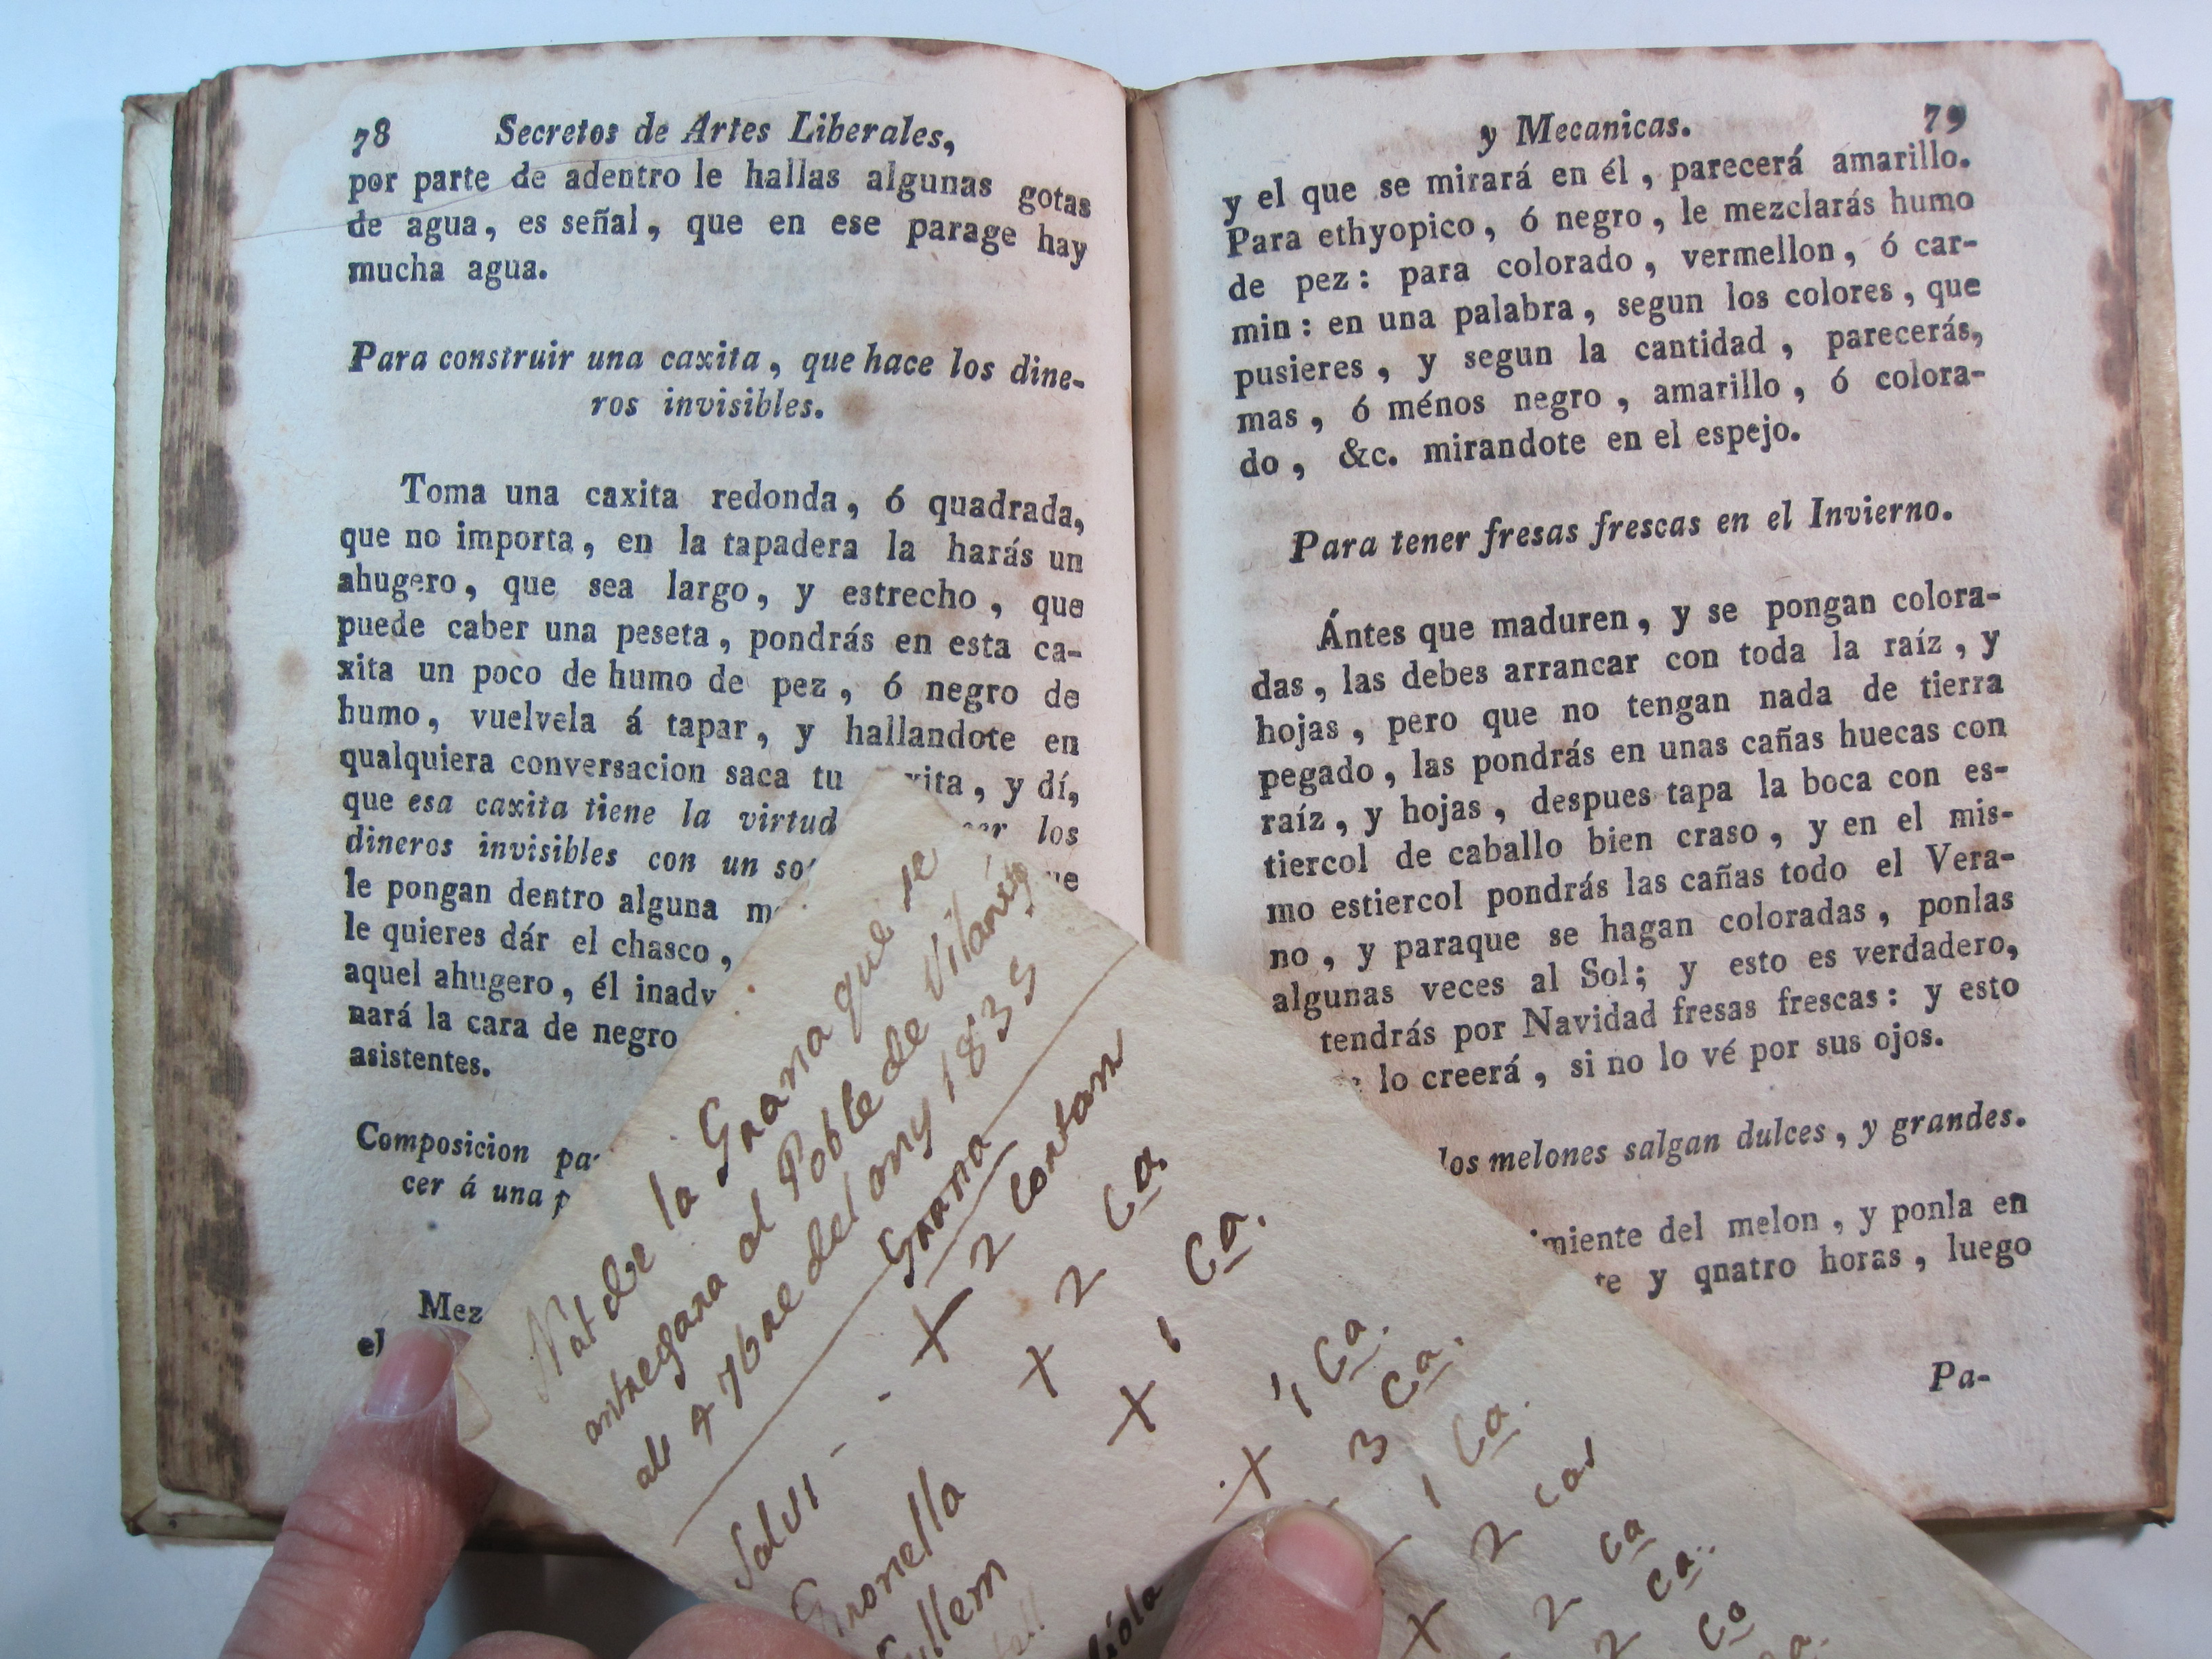 78 Secretos de Artes Liberales,
por parte de adentro le hallas algunas gotas
de agua, es señal, que en ese parage hay
mucha agua.
Para construir una caxita, que hace los dine-
ros invisibles.
Toma una caxita redonda, ó quadrada,
que no importa, en la tapadera la harás un
ahugero, que sea largo, y estrecho, que
puede caber una peseta, pondrás en esta ca-
xita un poco de humo de pez, ó negro de
humo, vuelvela á tapar, y hallandote en
qualquiera conversacion saca tu xita, y dí,
que esa caxita tiene la virtud cer los
dineros invisibles con un so
le pongan dentro alguna m ue
le quieres dár el chasco,
aquel ahugero, él inadv
nará la cara de negro
asistentes.
Composicion pa
cer á una p
Mez
el
y Mecanicas. 79
y el que se mirará en él, parecerá amarillo.
Para ethyopico, ó negro, le mezclarás humo
de pez: para colorado, vermellon, ó car-
min: en una palabra, segun los colores, que
pusieres, y segun la cantidad, parecerás,
mas, ó ménos negro, amarillo, ó colora-
do, &c. mirandote en el espejo.
Para tener fresas frescas en el Invierno.
Ántes que maduren, y se pongan colora-
das, las debes arrancar con toda la raíz, y
hojas, pero que no tengan nada de tierra
pegado, las pondrás en unas cañas huecas con
raíz, y hojas, despues tapa la boca con es-
tiercol de caballo bien craso, y en el mis-
mo estiercol pondrás las cañas todo el Vera-
no, y paraque se hagan coloradas, ponlas
algunas veces al Sol; y esto es verdadero,
tendrás por Navidad fresas frescas: y esto
lo creerá, si no lo vé por sus ojos.
los melones salgan dulces, y grandes.
imiente del melon, y ponla en
te y qnatro horas, luego
Pa-
la Grana que se
antregara al Poble de Vilanis
als 4 7bre del any 1839
Grana
Salvi - - + 2 Cortans
Gironella + 2 Ca.
+ 1 Ca.
+ 1 Ca.
3 Ca.
1 Ca.
2 cas
+ 2 Ca
2 Ca.
Ca